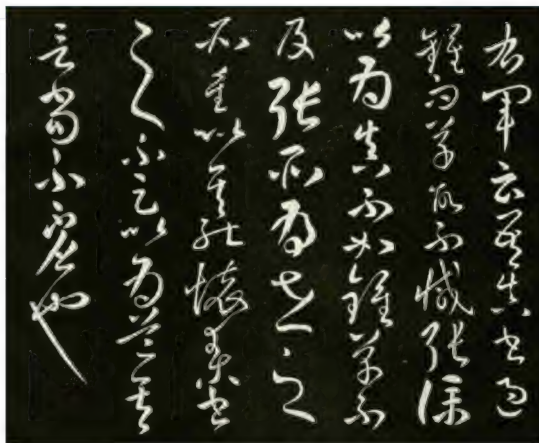 右軍云吾真書過
鍾而草故不減張僕
以為真不如鍾草不
及張所為世之
所重以其能懷素書
之不足以為道其
言當不虛也